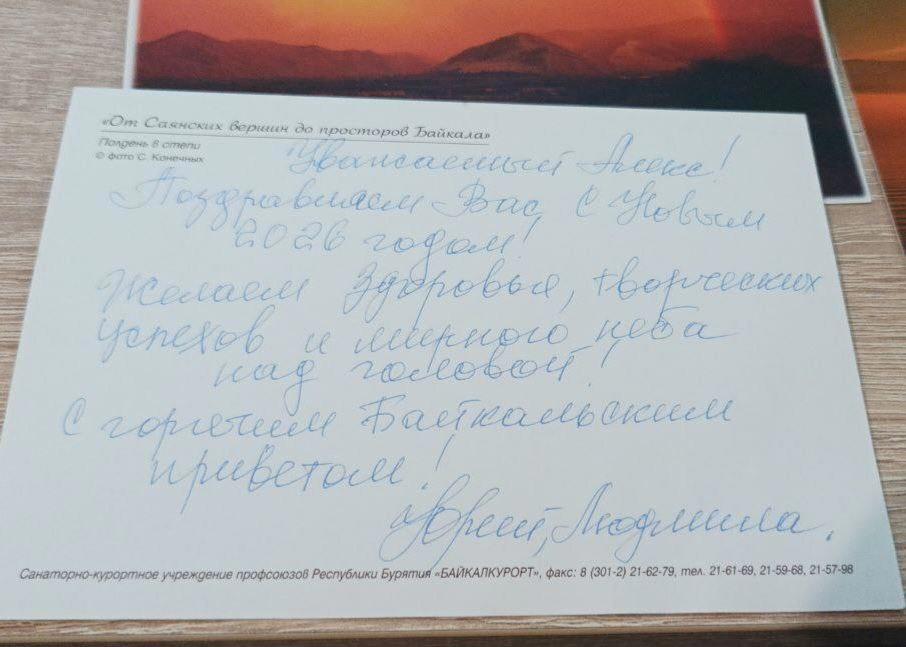 «От Саянских вершин до просторов Байкала»
Полдень в степи
© фото С. Конечных
Уважаемый Алекс!
Поздравляем Вас с Новым
2026 годом!
Желаем Здоровья, творческих
успехов и мирного неба
над головой!
С горячим Байкальским
приветом!
Юрий, Людмила.
Санаторно-курортное учреждение профсоюзов Республики Бурятия «БАЙКАЛКУРОРТ», факс: 8 (301-2) 21-62-79, тел. 21-61-69, 21-59-68, 21-57-98